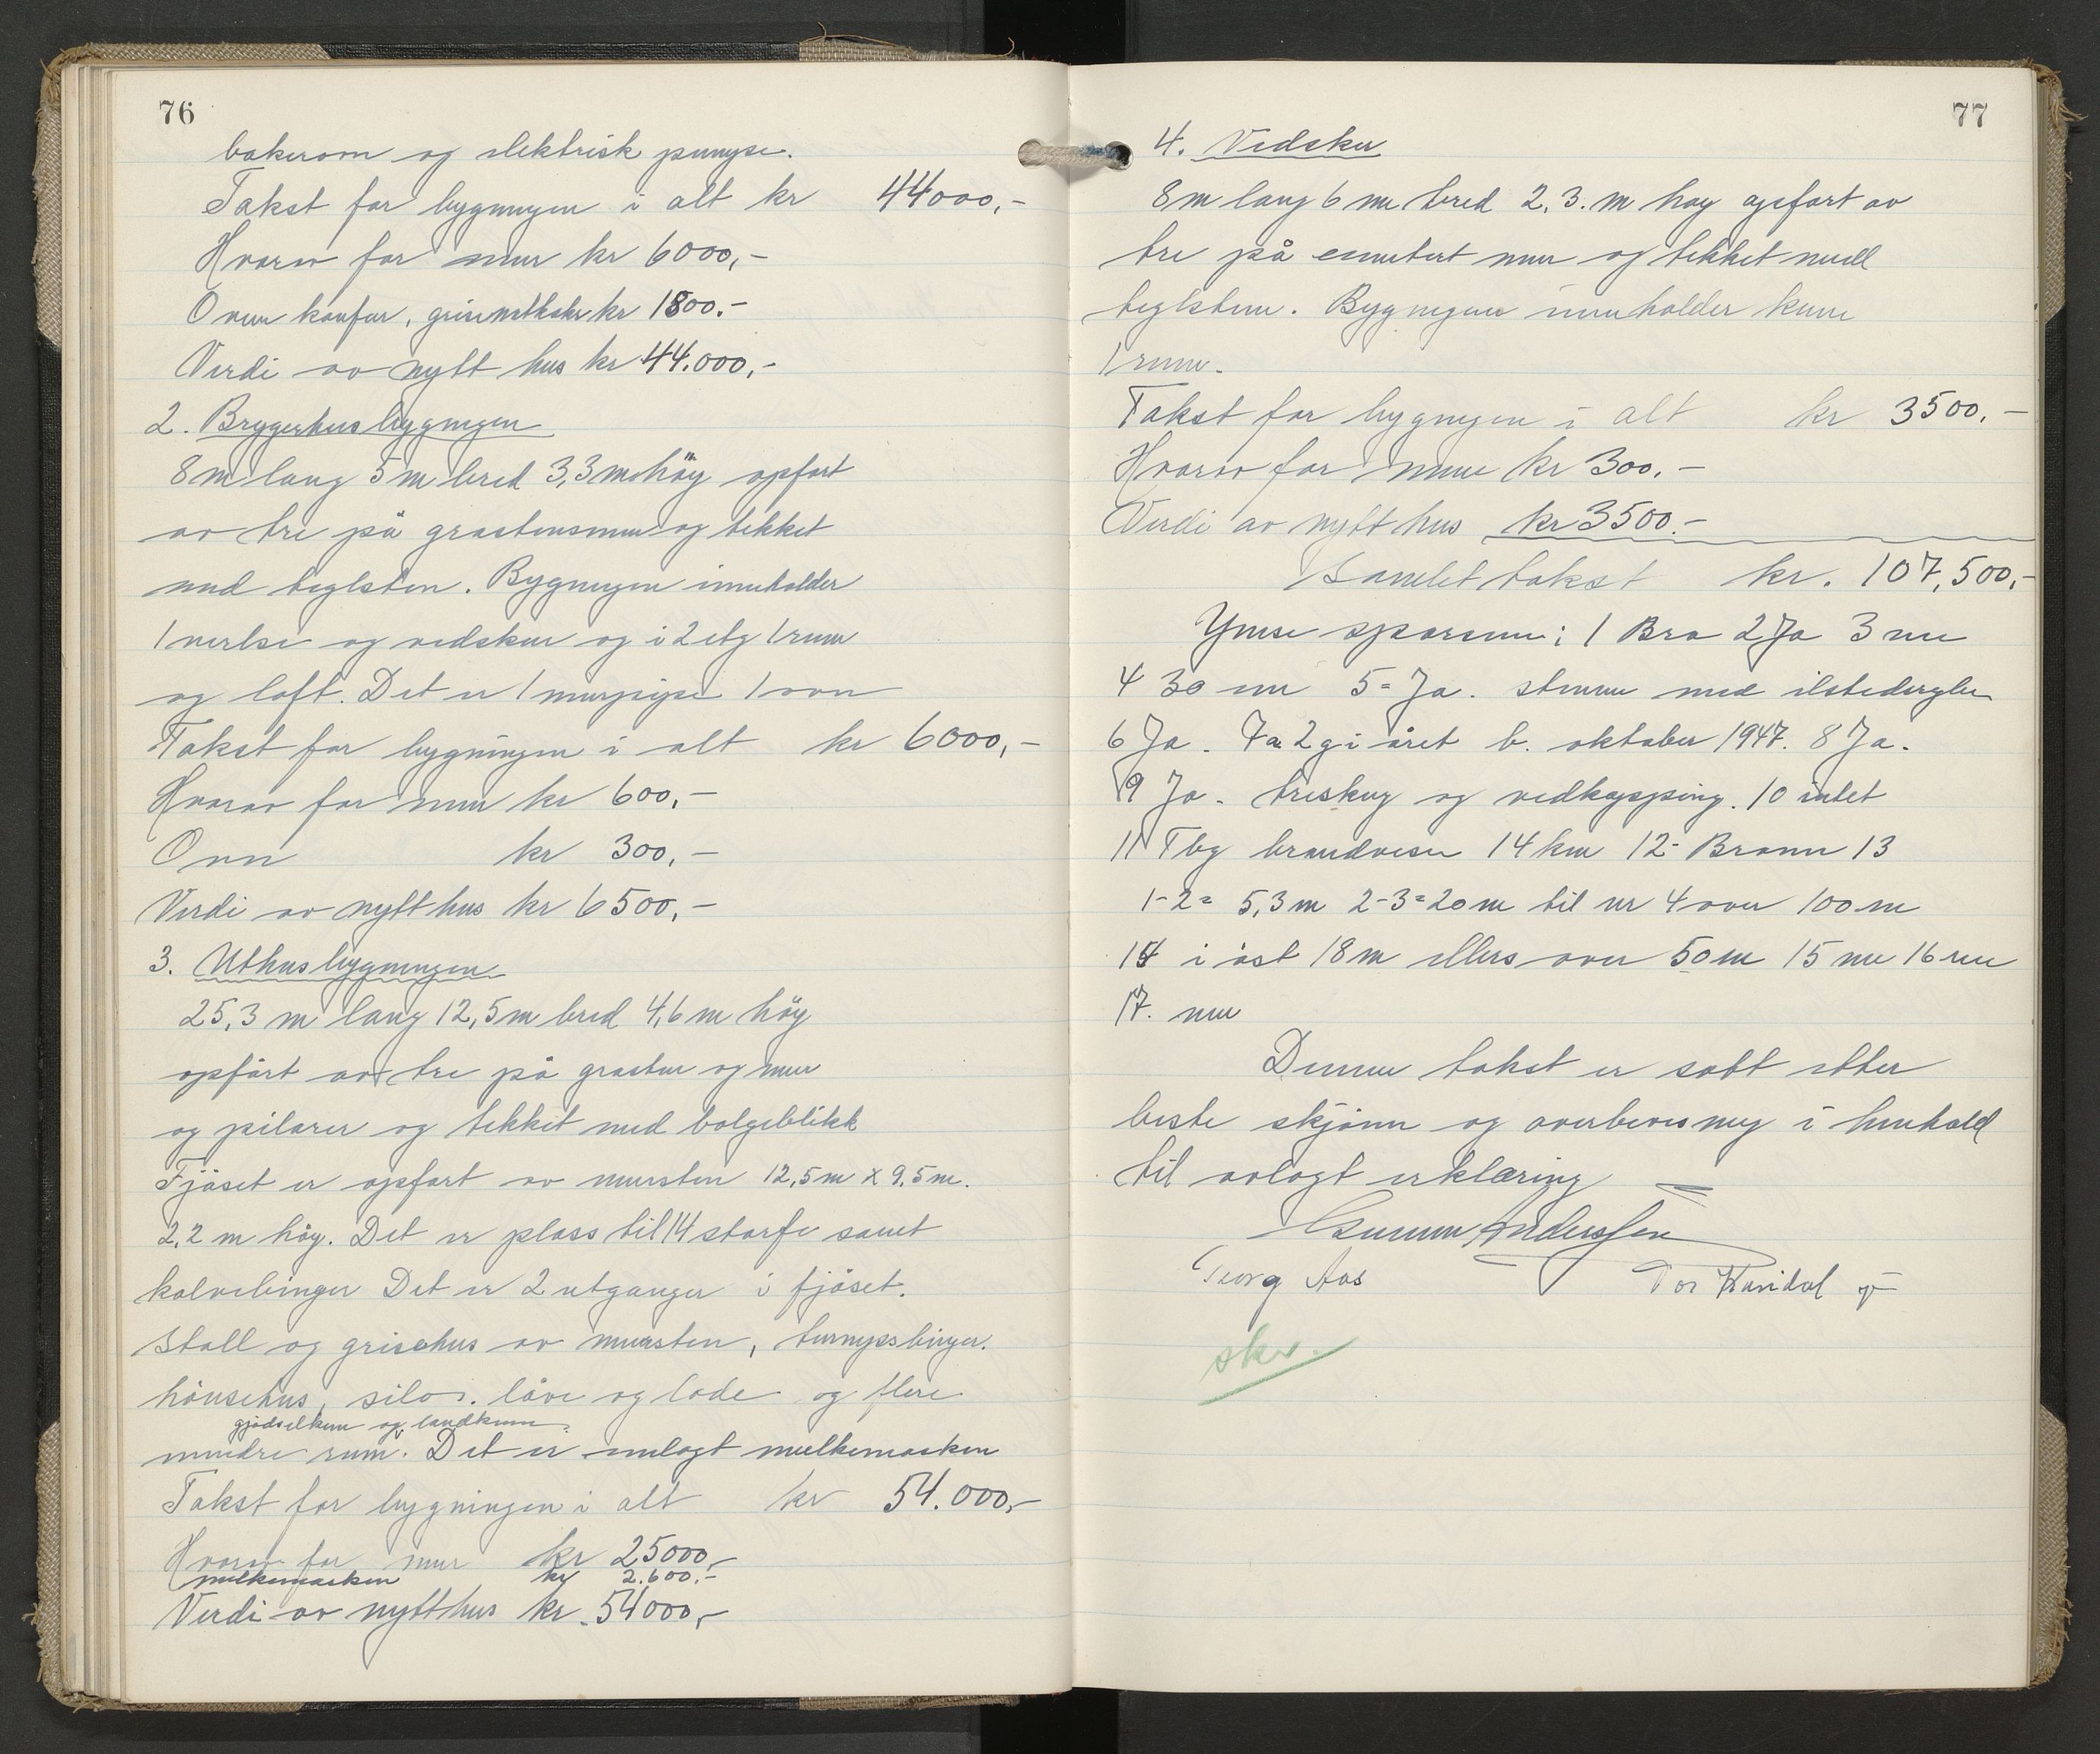 76
bakerom og elektrisk pumpe.
Takst for bygningen i alt kr 44000,-
Hvorav for mur kr 6000,-
Ovn komfur, kr 1800.-
Verdi av nytt hus kr 44.000,-
2. Bryggerhusbygningen
8 m lang 5 m bred 3,3 m høy opført
av tre på grastensmur og tekket
med teglsten. Bygningen inneholder
1 verelse og vedskur og i 2 etg 1 rum
og loft. Det er 1 murpipe 1 ovn
Takst for bygningen i alt kr 6000,-
Hvorav for mur kr 600,-
Ovn kr 300,-
Verdi av nytt hus kr 6500,-
3. Uthusbygningen
25,3 m lang 12,5 m bred 4,6 m høy
opført av tre på grasten og mur
og pilarer og tekket med bølgeblikk
Fjøset er opført av mursten 12,5 m x 9,5 m.
2,2 m høy. Det er plass til 14 storfe samt
kalvebinger Det er 2 utganger i fjøset.
Stall og grisehus av mursten, turnipsbinger.
hønsehus, silo. låve og lade og flere
gjødselkum og landkum.
mindre rum. Det er innlagt melkemaskin
Takst for bygningen i alt kr 54.000,-
Hvorav for mur kr 25000,-
melkemaskin kr 2.600.-
Verdi av nytt hus kr. 54000,-
77
4. Vedskur
8 m lang 6 m bred 2.3. m høy opført av
tre på sementert mur og tekket med
teglsten. Bygningen inneholder kun
1 rum.
Takst for bygningen i alt kr 3500.-
Hvorav for mur kr 300.-
Verdi av nytt hus kr 3500.-
Samlet takst kr. 107,500,-
Ymse spørsmu: 1 Bra 2 Ja 3 nei
4 30 cm 5 = Ja. stemmer med
6 Ja. 7a 2 g i året b. oktober 1947. 8 Ja.
9 Ja. tresking og vedkapping. 10 intet
11 Tbg brandvesen 14 km 12- Brønn 13
1-2= 5,3 m 2-3=20 m til nr 4 over 100 m
14 i øst 18 m ellers over 50 m 15 nei 16 nei
17. nei
Denne takst er satt etter
beste skjønn og overbevisning i henhold
til avlagt erklæring
Gunnar Anderssen
Georg Aas Tor
skr.